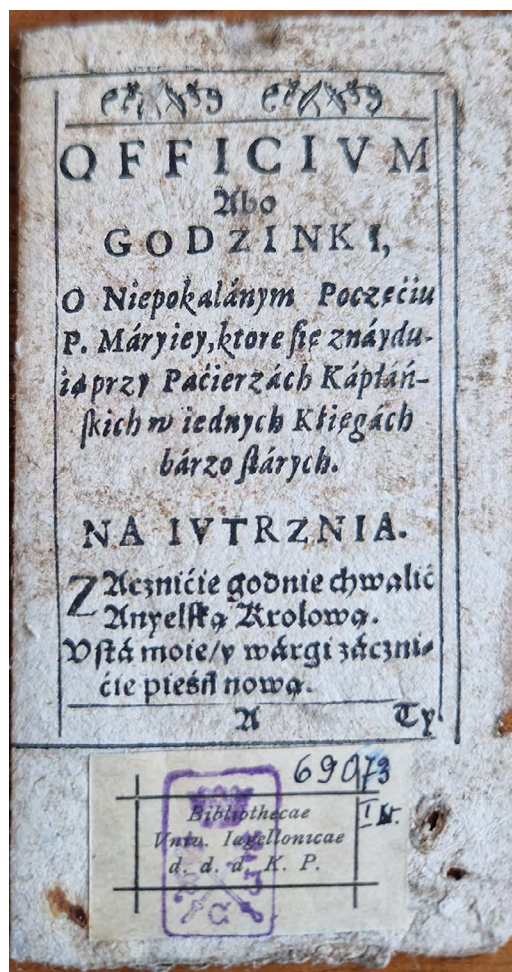 OFFICIVM
Abo
GODZINKI,
O Niepokalánym Poczęćiu
P. Máryiey, ktore ſię znáydu-
ią przy Paćierzách Kápłáń-
ſkich w iednych Kśięgách
bárzo ſtárych.
NA IVTRZNIA.
ZAcznićie godnie chwalić
Anyelſką Krolową.
Vſtá moie/y wárgi záczni-
ćie pieśń nową.
A Ty
69073
I
Bibliothecae
Univ. Iagellonicae
d. d. d. K. P.